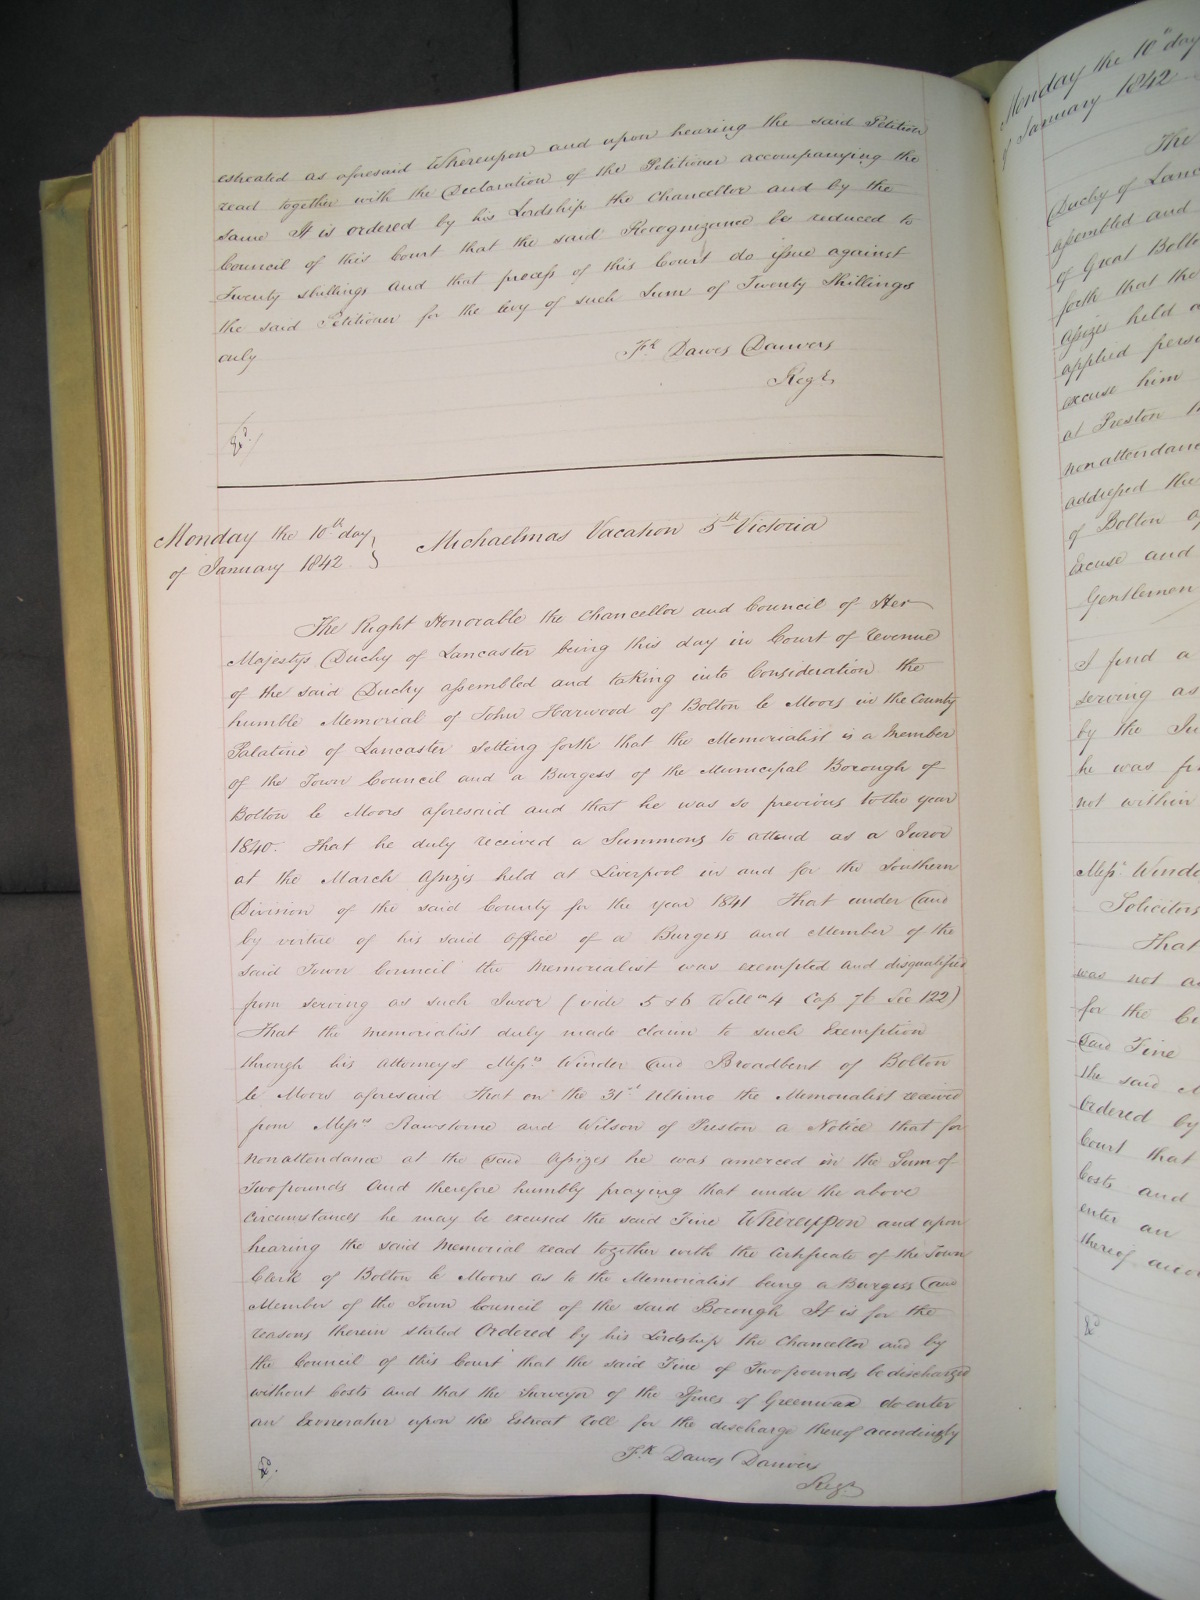 estreated as aforesaid Whereupon and upon hearing the said Petition
read together with the Declaration of the Petitioner accompanying the
same It is ordered by his Lordship the Chancellor and by the
Council of this Court that the said Recognizance be reduced to
Twenty shillings and that process of this Court do issue against
the said Petitioner for the levy of such Sum of Twenty Shillings
only
Fk Dawes Danvers
Regr
Monday the 10th day
of January 1842
Michaelmas Vacation 5th Victoria
The Right Honorable the Chancellor and Council of Her
Majestys Duchy of Lancaster being this day in Court of Revenue
of the said Duchy assembled and taking into Consideration the
humble Memorial of John Harwood of Bolton le Moors in the County
Palatine of Lancaster setting forth that the Memorialist is a Member
of the Town Council and a Burgess of the Municipal Borough of
Bolton le Moors aforesaid and that he was so previous to the year
1840. That he duly received a Summons to attend as a Juror
at the March Assizes held at Liverpool in and for the Southern
Division of the said County for the year 1841 That under and
by virtue of his said office of a Burgess and Member of the
said Town Council the Memorialist was exempted and disqualified
from serving as such Juror (vide 5 & 6 Willm 4 Cap 76 Sec 122)
That the memorialist duly made claim to such Exemption
through his attorneys Messrs Winder and Broadbent of Bolton
le Moors aforesaid That on the 31st Ultimo the Memorialist received
from Messrs Rawstorne and Wilson of Preston a Notice that for
nonattendance at the said Assizes he was amerced in the Sum of
Two pounds And therefore humbly praying that under the above
circumstances he may be excused the said Fine Whereupon and upon
hearing the said Memorial read together with the Certificate of the Town
Clerk of Bolton le Moors as to the Memorialist being a Burgess and
Member of the Town Council of the said Borough It is for the
reasons therein stated Ordered by his Lordship the Chancellor and by
the Council of this Court that the said Fine of Two pounds be discharged
without Costs and that the Surveyor of the Issues of Greenwax do enter
an Exoneratur upon the Estreat roll for the discharge thereof accordingly
Fk Dawes Danvers
Regr
Monday the 10th day
of January 1842
The
Duchy of Lanc
assembled and
of Great Bolto
forth that the
Assizes held a
applied perso
excuse him
at Preston
nonattendanc
addressed the
of Bolton
Excuse and
Gentlemen
I find a
serving as
by the Ju
he was
not within
Messrs Winde
Solicitors
That
was not
for the
said Fine
the said
Ordered by
Court that
Costs and
enter an
thereof acco